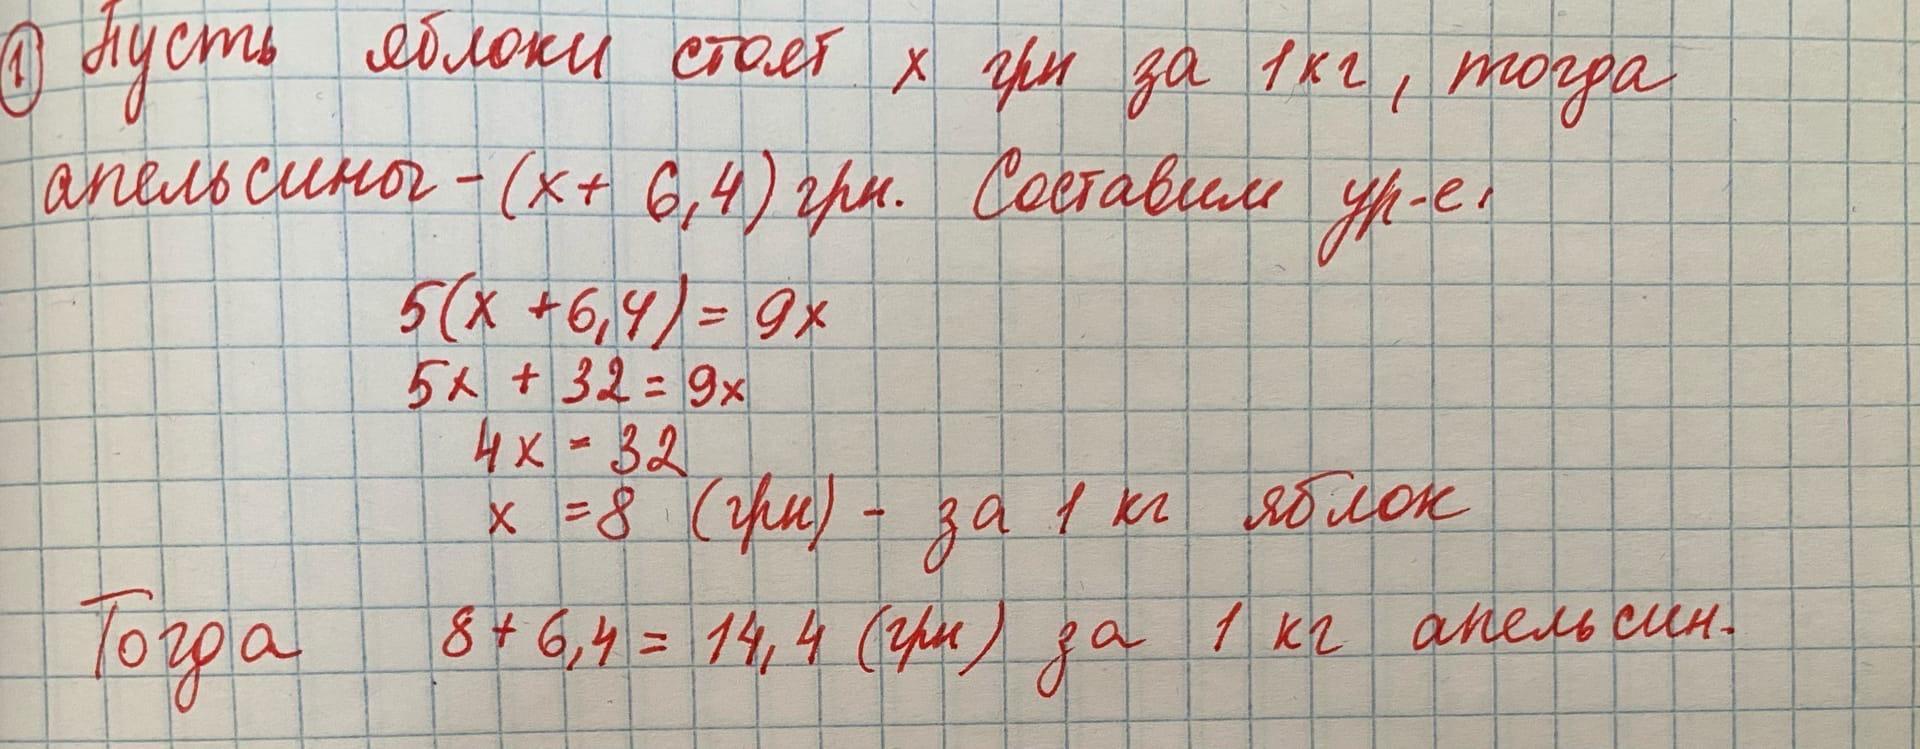 ① Пусть яблоки стоят х грн за 1 кг, тогда
апельсины - (х + 6,4) грн. Составим ур-е.
5(х + 6,4) = 9х
5х + 32 = 9х
4х = 32
х = 8 (грн) - за 1 кг яблок
Тогда 8 + 6,4 = 14,4 (грн) за 1 кг апельсин.